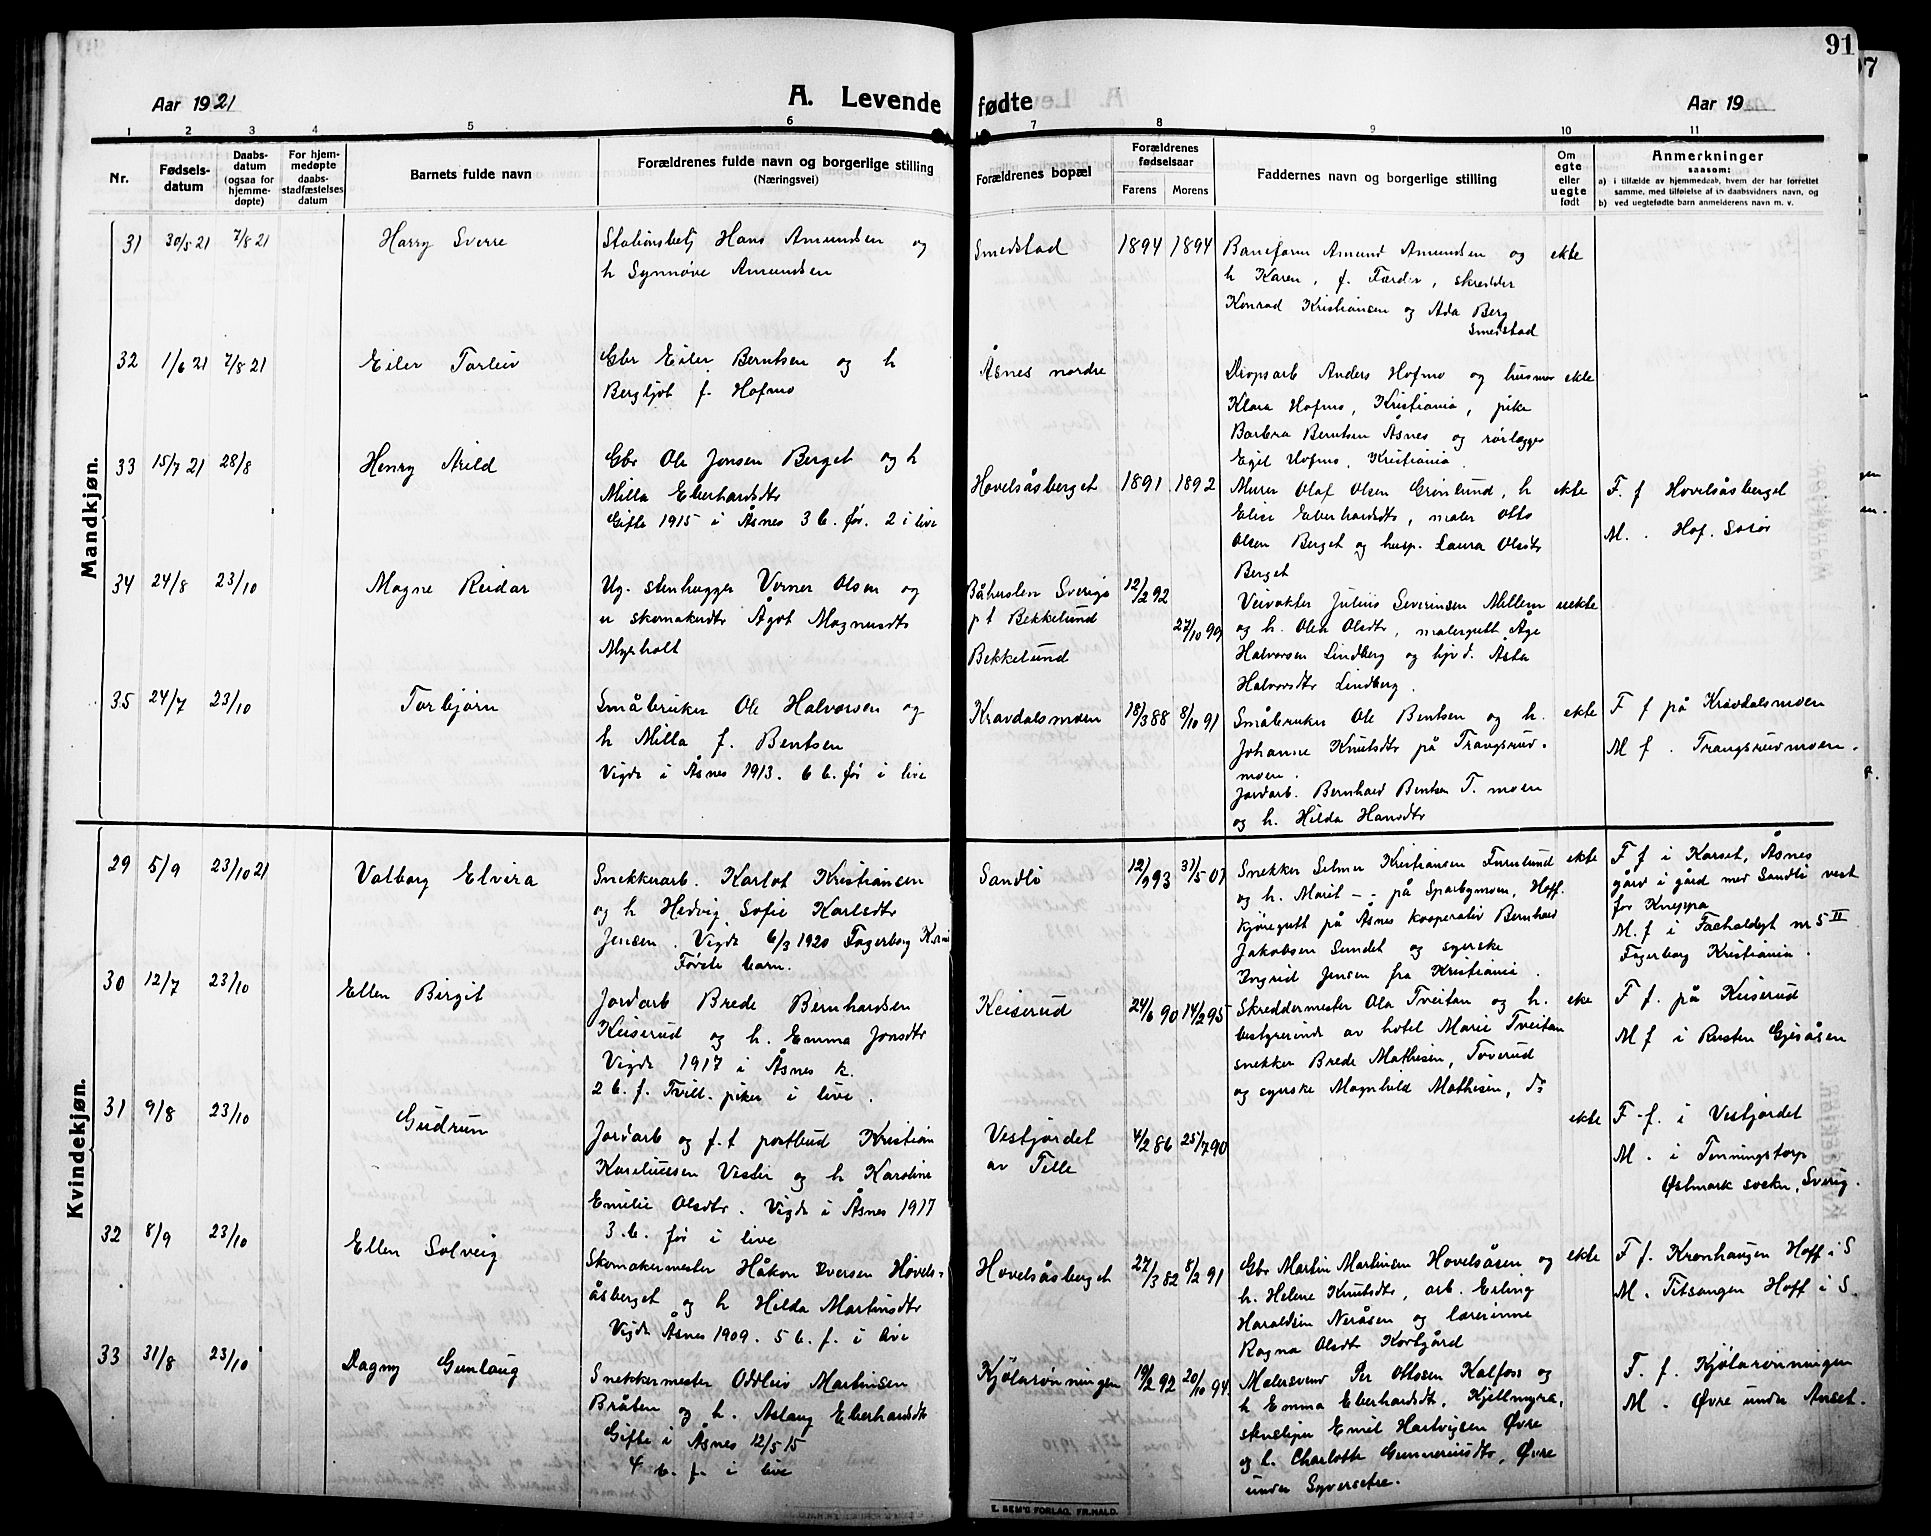 91
7
Aar 1921
A. Levende
fødte
Aar 19
1 2 3 4 5 6
7 8 9 10 11
Nr.
Fødsels-
datum
Daabs-
datum
(ogsaa for
hjemme-
døpte)
For hjem-
medøpte
daabs-
stadfæstelses
datum
Barnets fulde navn
Forældrenes fulde navn og borgerlige stilling
(Næringsvei)
Forældrenes bopæl
Forældrenes
fødselsaar
Farens Morens
Faddernes navn og borgerlige stilling
Om
egte
eller
uegte
født
Anmerkninger
saasom:
a) i tilfælde av hjemmedaab, hvem der har forrettet
samme, med tilføielse af to daabsvidners navn, og
b) ved uegtefødte barn anmelderens navn m. v.
Mandkjøn.
31 30/5 21 7/8 21 Harry Sverre
Stationsbetj Hans Amundsen og
h Synnøve Amundsen
Smedstad 1894 1894
Baneform Amund Amundsen og
h Karen, f. Færder, skredder
Konrad Kristiansen og Ada Berg
Smedstad
ekte
32 1/6 21 7/8 21 Eiler Torleiv
Gbr Eiler Berntsen og h
Bergljot f. Hofmo
Åsnes nordre
Dropsarb Anders Hofmo og husmor
Klara Hofmo, Kristiania, pike
Barbra Berntsen Åsnes og rørlægger
Egil Hofmo, Kristiania.
ekte
33 15/7 21 28/8 Henry Arild
Gbr Ole Jensen Berget og h
Milla Eberhardsdtr
Gifte 1915 i Åsnes 3 b. før. 2 i live
Hovelsåsberget 1891 1892
Murer Olaf Olsen Grønlund, h
Elise Eberhardsdtr, maler Otto
Olsen Berget og husp. Laura Olsdtr
Berget
ekte
F. f Hovelsåsberget
M. . Hof. Solør
34 24/8 23/10 Magne Reidar
Ug. stenhugger Verner Olsen og
u skomakerdtr Ågot Magnusdtr
Myrholt
Båhuslen Sverige
p t Bekkelund
Bekkelund
12/2 92
27/10 99
Veivokter Julius Severinsen Mellem
og h. Olea Olsdtr, malergutt Åge
Halvorsen Lindberg og hjv d. Åsta
Halvorsdtr Lindberg.
uekte
35 24/7 23/10 Torbjørn
Småbruker Ole Halvorsen og
h Milla f. Bentsen
Vigde i Åsnes 1913. 6 b. før i live
Kravdalsmoen 18/3 88 8/10 91
Småbruker Ole Bentsen og h.
Johanne Knutsdtr på Trangsrud-
moen.
Jordarb. Bernhard Bentsen T. moen
og h. Hilda Hansdtr
ekte
F f på Kravdalsmoen
M f . Trangsrudmoen.
Kvindekjøn.
29 5/9 23/10 21 Valborg Elvira
Snekkerarb. Karlot Kristiansen
og h Hedvig Sofie Karlsdtr
Jensen. Vigde 6/3 1920 Fagerborg Kr.nia
Første barn.
Sandli 12/9 93 31/5 01
Snekker Selmer Kristiansen Furulund
og h. Marit – - på Sparbymoen, Hoff.
kjøregutt på Åsnes kooperativ Bernhard
Jakobsen Sundet og syerske
Ingrid Jensen fra Kristiania.
ekte
F f i Karset, Åsnes
gård i gård med Sandli vest
for Kneppa
M. f i Faeholdegt nr 5 II
Fagerborg Kristiania.
30 12/7 23/10 Ellen Birgit
Jordarb Brede Bernhardsen
Keiserud og h. Emma Jonsdtr
Vigde 1917 i Åsnes k.
2 b. f. Tvill. piker i live.
Keiserud 24/6 90 14/2 95
Skreddermester Ola Tveitan og h.
bestyrerinde av hotel Marie Tveitan
snekker Brede Mathisen, Toverud
og syerske Magnhild Mathisen, do
eke
F f. på Keiserud
M f i Rusten Gjesåsen
31 9/8 23/10 Gudrun
Jordarb og f.t postbud Kristian
Kareliussen Vester og h Karoline
Emilie Olsdtr. Vigde i Åsnes 1917
3. b. før i live
Vestjordet
av Telle
4/2 86 25/7 90
ekte
F - f. i Vestjordet
M. . i Tenningstorp
Østmark socken, Sverig.
32 8/9 23/10 Ellen Solveig
Skomakermester Håkon Iversen Hovels-
åsberget og h Hilda Martinsdtr
Vigde Åsnes 1909. 5 b. f. i live
Hovelsåsberget 27/3 82 8/2 91
Gbr Martin Martinsen Hovelsåsen og
h. Helene Knutsdtr, arb. Erling
Haraldsen Neråsen og lærerinne
Ragna Olsdtr Kortgård
ekte
F f. Kronhaugen Hoff i S
M. . Titsangen Hoff i S.
33 31/8 23/10 Dagny Gunlaug
Snekkermester Oddleiv Martinsen
Bråten og h. Aslaug Eberhardsdtr
Gifte i Åsnes 12/5 15
4 b. f. i live
Kjølarønningen 19/2 92 20/10 94
Malersvend Per Ottosen Kalfoss og
h Emma Eberhardsdt, Kjellmyra,
stensliper Emil Hartvigsen Øvre
og h. Charlotte Gunneriusdtr, Øvre
under Syversetre.
F. f. Kjølarønningen
M. . Øvre under Arset.
E. SEM'S FORLAG, FR.HALD.